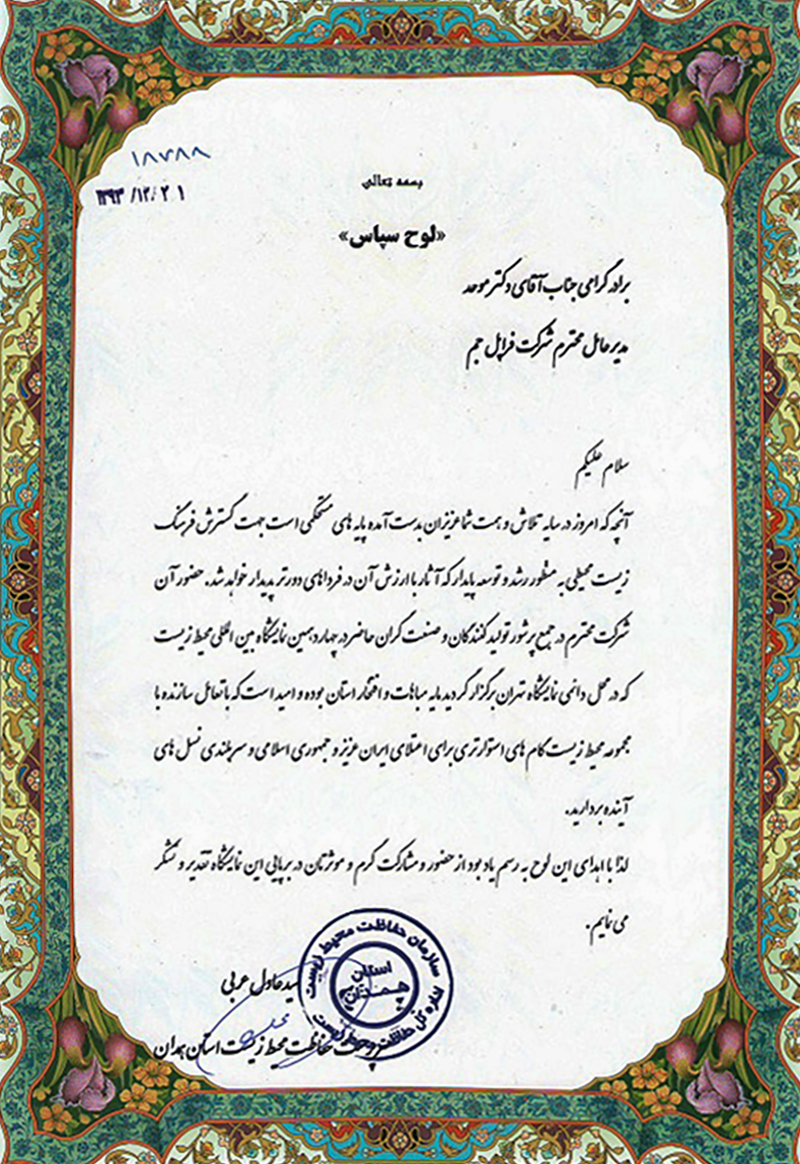 ۱۸۷۸۸
۱۳۹۳/۱۲/۲۱
بسمه تعالی
«لوح سپاس»
برادر گرامی جناب آقای دکتر موحد
مدیر عامل محترم شرکت فراپل جم
سلام علیکم
آنچه که امروز در سایه تلاش و همت شما عزیزان بدست آمده پایه های مستحکمی است جهت گسترش فرهنگ
زیست محیطی به منظور رشد و توسعه پایدار که آثار با ارزش آن در فرداهای دورتر پدیدار خواهد شد. حضور آن
شرکت محترم در جمع پرشور تولید کنندگان و صنعت گران حاضر در چهاردهمین نمایشگاه بین المللی محیط زیست
که در محل دائمی نمایشگاه تهران برگزار گردید مایه مباهات و افتخار استان بوده و امید است که با تعامل سازنده با
مجموعه محیط زیست گام های استوارتری برای اعتلای ایران عزیز و جمهوری اسلامی و سربلندی نسل های
آینده بردارید.
لذا با اهدای این لوح به رسم یادبود از حضور و مشارکت گرم و موثرتان در برپایی این نمایشگاه تقدیر و تشکر
می نمایم.
سازمان حفاظت محیط زیست
استان
همدان
اداره کل حفاظت محیط زیست
سید عادل عربی
حفاظت محیط زیست استان همدان